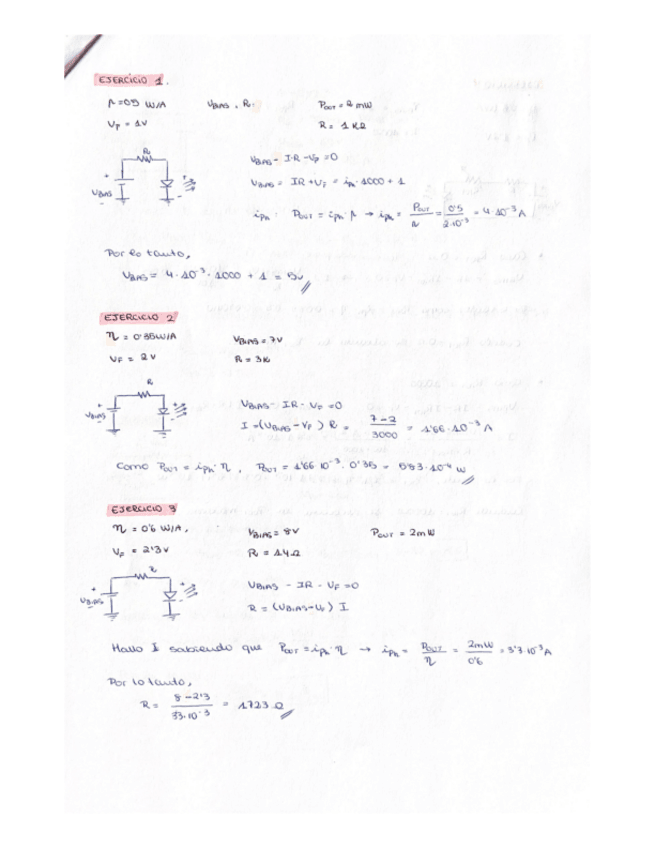 EJERCICIO 1.
η = 0'5 W/A   V_BIAS, R:   P_OUT = 2 mW
V_F = 1V   R = 1 KΩ
R
+ V_BIAS
V_BIAS - I·R - V_F = 0
V_BIAS = IR + V_F = i_Ph · 1000 + 1
i_Ph : P_OUT = i_Ph · η → i_Ph = P_OUT / η = 0'5 / 2·10⁻³ = 4·10⁻³ A
Por lo tanto,
V_BIAS = 4·10⁻³ · 1000 + 1 = 5V
EJERCICIO 2
η = 0'35 W/A   V_BIAS = 7V
V_F = 2V   R = 3K
R
+ V_BIAS
V_BIAS - IR - V_F = 0
I = (V_BIAS - V_F) R = 7-2 / 3000 = 1'66·10⁻³ A
Como P_OUT = i_Ph · η, P_OUT = 1'66 10⁻³ · 0'35 = 5'83·10⁻⁴ W
EJERCICIO 3
η = 0'6 W/A,   V_BIAS = 8V   P_OUT = 2mW
V_F = 2'3V   R = Ω
R
+ V_BIAS
V_BIAS - IR - V_F = 0
R = (V_BIAS - V_F) I
Hallo I sabiendo que P_OUT = i_Ph · η → i_Ph = P_OUT / η = 2mW / 0'6 = 3'3·10⁻³ A
Por lo tanto,
R = 8-2'3 / 33·10⁻³ = 1723 Ω